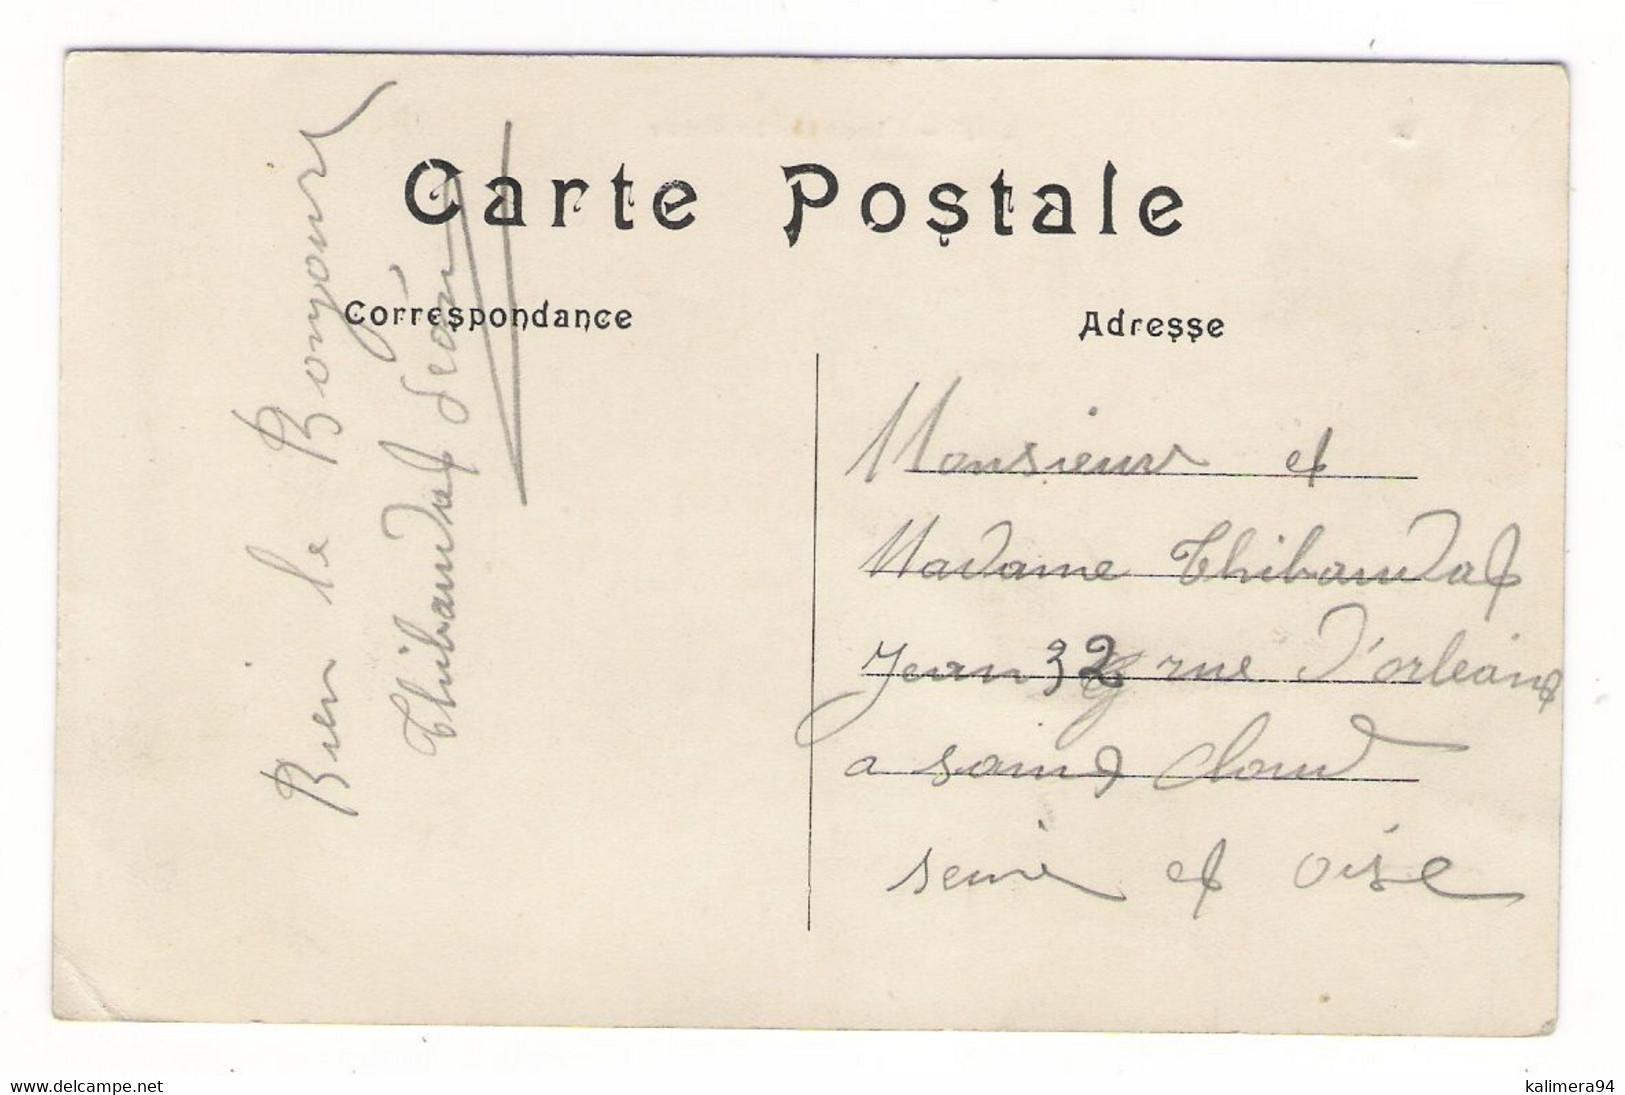 Carte Postale
Correspondance
Adresse
Bien le Bonjour
Thibaudat Léon
Monsieur et
Madame Thibaudat
Jean 32 rue d'orleans
a saint cloud
seine et oise
www.delcampe.net
kalimera94